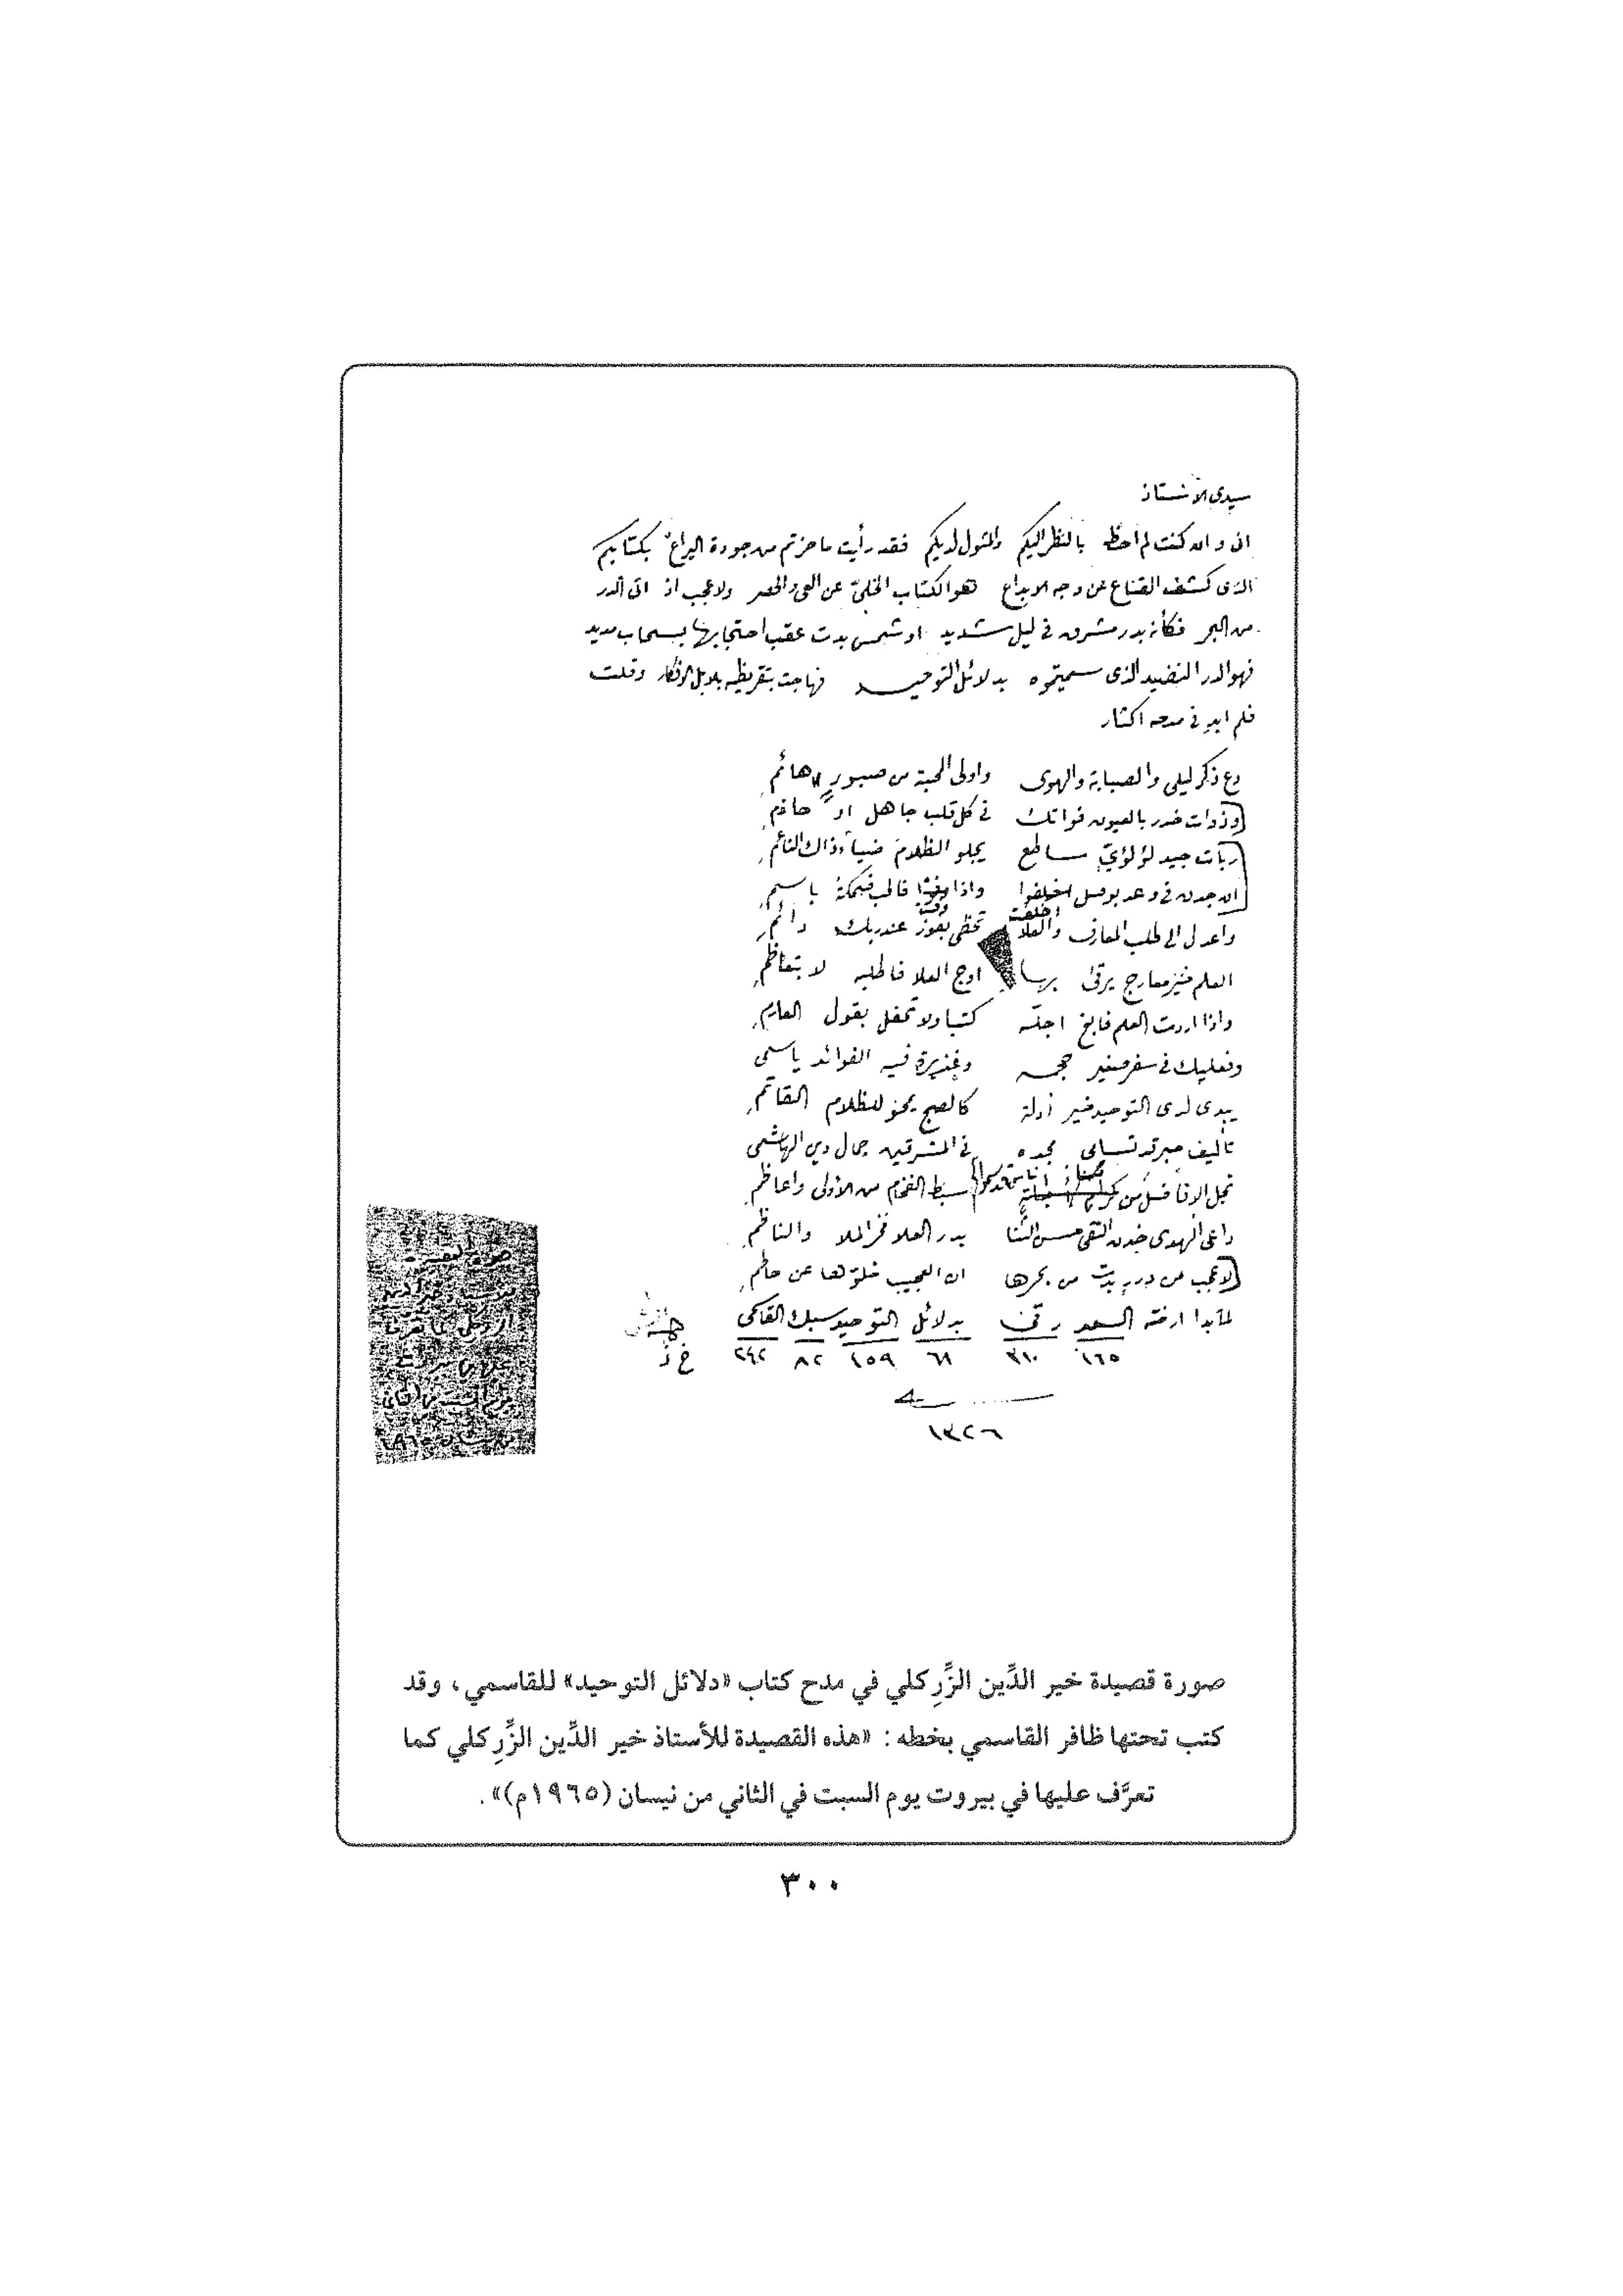 سيدي الاستاذ
اني والله كنت لم احظ بالنظر اليكم والمثول لديكم فقد رأيت ما حزتم من جودة اليراع بكتابكم
الذي كشف القناع عن وجه الابداع هو الكتاب الخلي عن العي والحصر ولا عجب اذ اتى الدر
من البحر فكأنه بدر مشرق في ليل شديد او شمس بدت عقب احتجابها بسحاب مديد
فهو الدر النضيد الذي سميتموه بدلائل التوحيد فهاجت بتقريظه بلابل الافكار وقلت
فلم ابد في مدحه اكثار
دع ذكر ليلى والصبابة والهوى واولى المحبة من صبور هائم
وذوات خدر بالعيون فواتك في كل قلب جاهل او حازم
ربات جيد لؤلؤي ساطع يجلو الظلام ضياء ذاك
ان جدن في وعد بوصل اخلفوا واذا باسم
اخلفت
واعدل الى طلب المعارف والعلا تحظى بفوز عند ربك دائم
العلم خير معارج يرقى بها اوج العلا فاطلبه لا بتعاظم
واذا اردت العلم فابغ اجله كتبا ولا تحفل بقول
وفعليك في سفر صغير حجمه وغزيرة فيه الفوائد يا سمي
يبدي لدى التوحيد خير أدلة كالصبح يمحو للظلام القاتم
تأليف حبر قد تسامى مجده في المشرقين جمال دين الهاشمي
نجل الافاضل من كرام سبط الفخام من الأولى واعاظم
داعي الهدى خدن التقى حسن الثنا بدر العلا فخر الملا والناظم
لا عجب من درر بدت من بحرها ان العجيب خلوها عن حاطم
لما بدا ارخته السعد رقى بدلائل التوحيد سبك القاسمي
١٦٥ ٣١٠ ٦٨ ١٥٩ ٨٢ ٢٤٢
خ ز
١٣٢٦
صورة قصيدة خير الدِّين الزِّرِكلي في مدح كتاب «دلائل التوحيد» للقاسمي، وقد
كتب تحتها ظافر القاسمي بخطه: «هذه القصيدة للأستاذ خير الدِّين الزِّرِكلي كما
تعرَّف عليها في بيروت يوم السبت في الثاني من نيسان (١٩٦٥م)».
٣٠٠